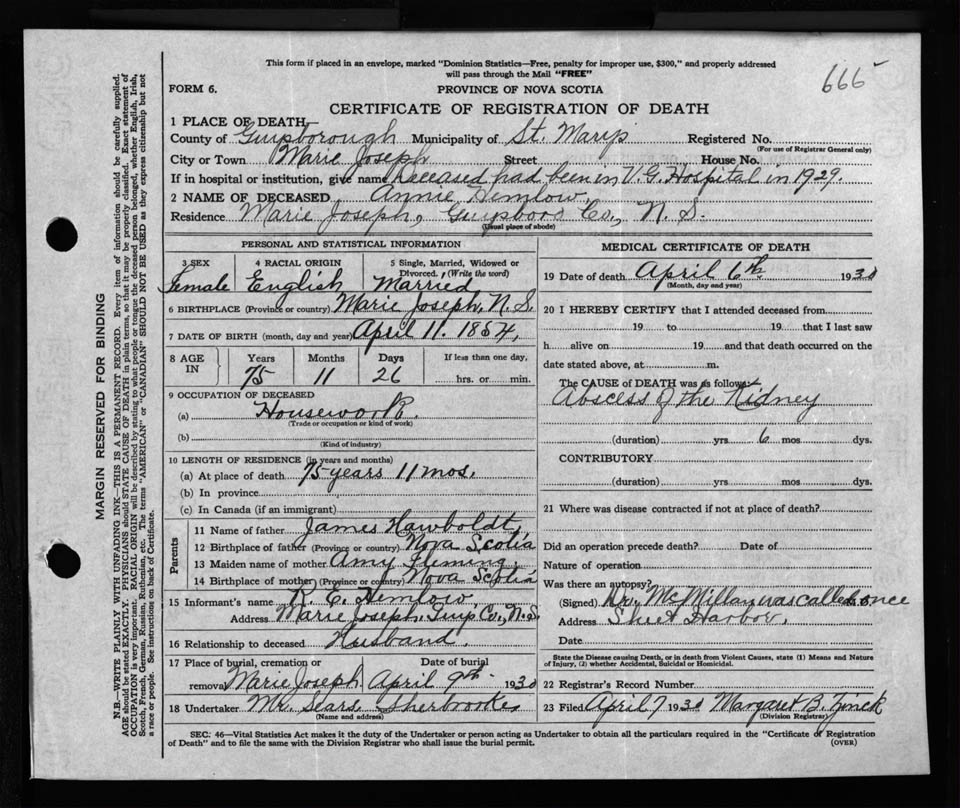 This form if placed in an envelope, marked "Dominion Statistics—Free, penalty for improper use, $300," and properly addressed
will pass through the Mail "FREE"
666
FORM 6.
PROVINCE OF NOVA SCOTIA
CERTIFICATE OF REGISTRATION OF DEATH
1 PLACE OF DEATH,
County of Guysborough Municipality of St. Mary's Registered No.
(For use of Registrar General only)
City or Town Marie Joseph Street House No.
If in hospital or institution, give name released had been in V.G. Hospital in 1929.
2 NAME OF DECEASED Annie Hemlow,
Residence Marie Joseph, Guysboro Co., N. S.
(Usual place of abode)
PERSONAL AND STATISTICAL INFORMATION
3 SEX 4 RACIAL ORIGIN 5 Single, Married, Widowed or Divorced, (Write the word)
Female English Married
6 BIRTHPLACE (Province or country) Marie Joseph, N. S.
7 DATE OF BIRTH (month, day and year) April 11. 1854,
8 AGE IN Years Months Days If less than one day,
75 11 26 hrs. or min.
9 OCCUPATION OF DECEASED
(a) Housework.
(Trade or occupation or kind of work)
(b)
(Kind of industry)
10 LENGTH OF RESIDENCE (in years and months)
(a) At place of death 75 years 11 mos.
(b) In province
(c) In Canada (if an immigrant)
Parents
11 Name of father James Hawboldt,
12 Birthplace of father (Province or country) Nova Scotia
13 Maiden name of mother Amy Fleming,
14 Birthplace of mother (Province or country) Nova Scotia
15 Informant's name R. E. Hemlow,
Address Marie Joseph. Guys Co., N. S.
16 Relationship to deceased Husband.
17 Place of burial, cremation or removal Date of burial
Marie Joseph April 9th 1930
18 Undertaker Mr. Sears Sherbrooke
(Name and address)
MEDICAL CERTIFICATE OF DEATH
19 Date of death April 6th 1930
(Month, day and year)
20 I HEREBY CERTIFY that I attended deceased from
19 to 19 that I last saw
h alive on 19 and that death occurred on the
date stated above, at m.
The CAUSE OF DEATH was as follows:
Abscess of the Kidney
(duration) yrs 6 mos dys.
CONTRIBUTORY
(duration) yrs. mos. dys.
21 Where was disease contracted if not at place of death?
Did an operation precede death? Date of
Nature of operation
Was there an autopsy?
(Signed) Dr. McMillan was called once
Address Sheet Harbor,
Date
State the Disease causing Death, or in death from Violent Causes, state (1) Means and Nature
of Injury, (2) whether Accidental, Suicidal or Homicidal.
22 Registrar's Record Number
23 Filed April 7 1930 Margaret B. Zinck
(Division Registrar)
SEC. 46—Vital Statistics Act makes it the duty of the Undertaker or person acting as Undertaker to obtain all the particulars required in the "Certificate of Registration
of Death" and to file the same with the Division Registrar who shall issue the burial permit.
(OVER)
MARGIN RESERVED FOR BINDING
N.B.—WRITE PLAINLY WITH UNFADING INK—THIS IS A PERMANENT RECORD. Every item of information should be carefully supplied.
AGE should be stated EXACTLY. PHYSICIANS should STATE CAUSE OF DEATH in plain terms, so that it may be properly classified. Exact statement of
OCCUPATION is very important. RACIAL ORIGIN will be described by stating to what people or tongue the deceased person belonged, whether English, Irish,
Scotch, French, German, Russian, Ruthenian, etc. The terms "AMERICAN" or "CANADIAN" SHOULD NOT BE USED as they express citizenship but not
a race or people. See instructions on back of Certificate.